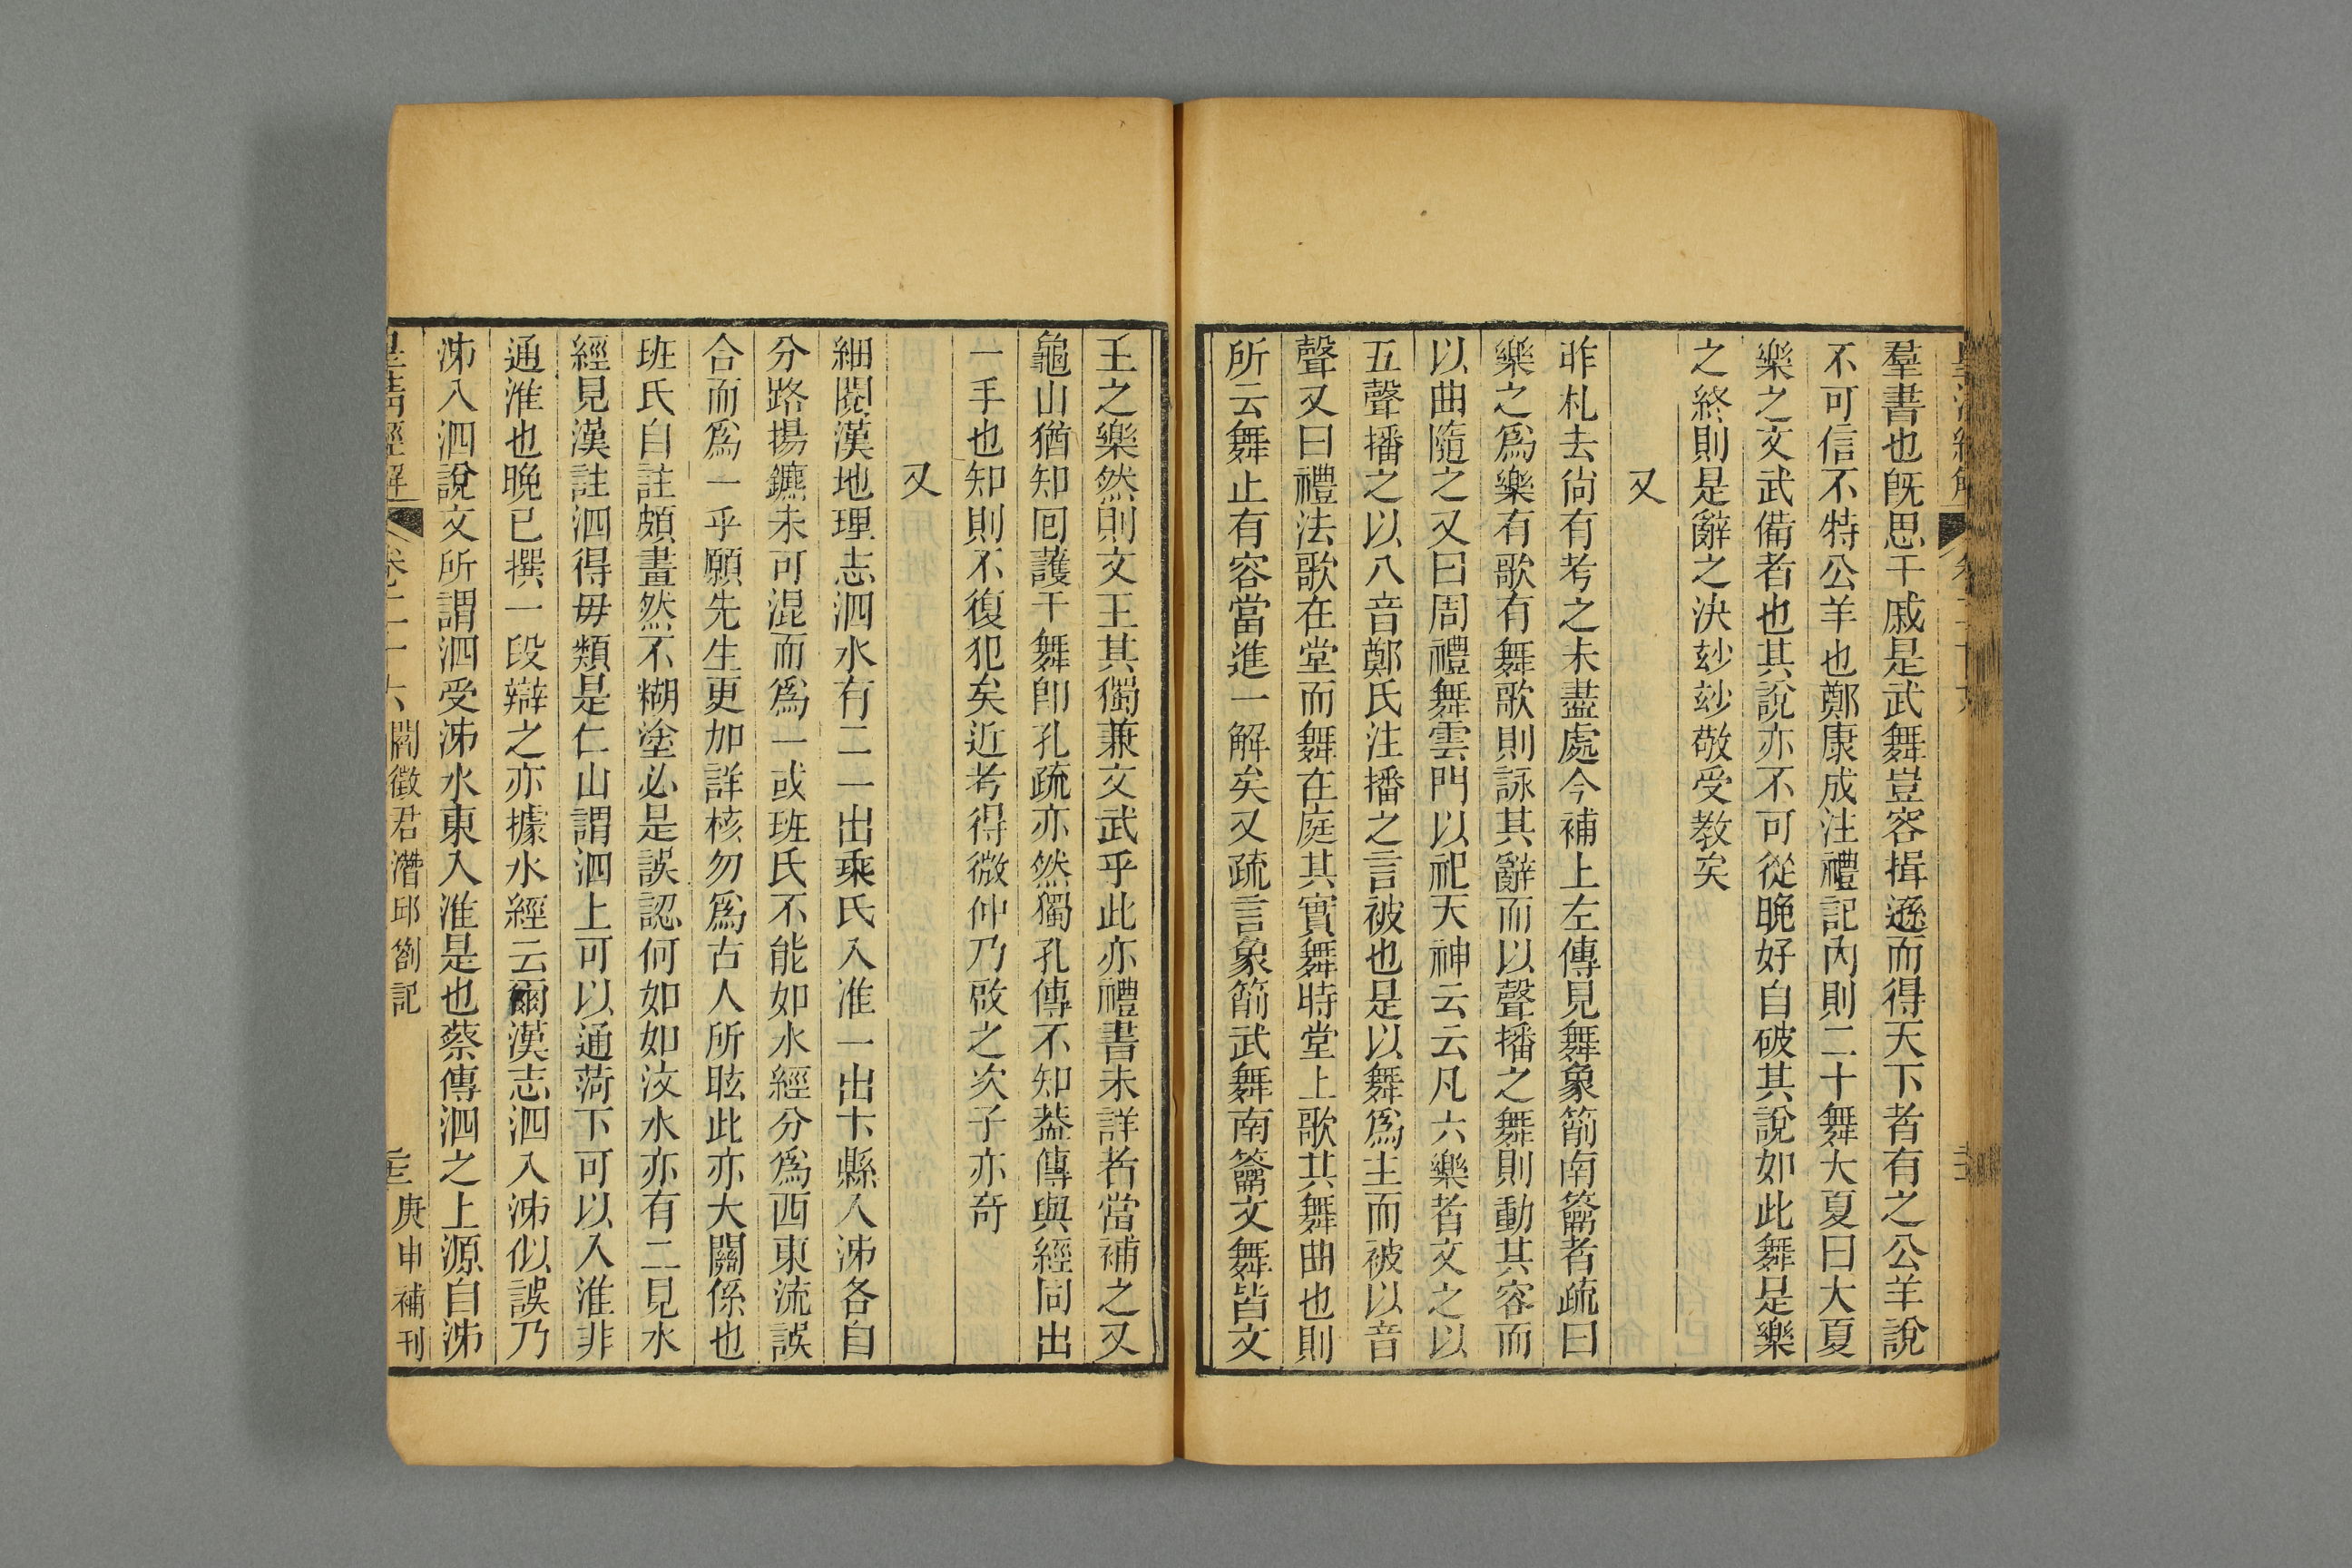 羣書也旣思干戚是武舞豈容揖遜而得天下者有之公羊說
不可信不特公羊也鄭康成注禮記內則二十舞大夏曰大夏
樂之文武備者也其說亦不可從晚好自破其說如此舞是樂
之終則是辭之決玅玅敬受教矣
又
昨札去尙有考之未盡處今補上左傳見舞象箾南籥者疏曰
樂之爲樂有歌有舞歌則詠其辭而以聲播之舞則動其容而
以曲隨之又曰周禮舞雲門以祀天神云云凡六樂者文之以
五聲播之以八音鄭氏注播之言被也是以舞爲主而被以音
聲又曰禮法歌在堂而舞在庭其實舞時堂上歌其舞曲也則
所云舞止有容當進一解矣又疏言象箾武舞南籥文舞皆文
王之樂然則文王其獨兼文武乎此亦禮書未詳者當補之又
龜山猶知回護干舞卽孔疏亦然獨孔傳不知葢傳與經同出
一手也知則不復犯矣近考得微仲乃啟之次子亦奇
又
細閱漢地理志泗水有二一出乘氏入淮一出卞縣入泲各自
分路揚鑣未可混而爲一或班氏不能如水經分爲西東流誤
合而爲一乎願先生更加詳核勿爲古人所眩此亦大關係也
班氏自註頗畫然不糊塗必是誤認何如如汶水亦有二見水
經見漢註泗得毋類是仁山謂泗上可以通菏下可以入淮非
通淮也晚已撰一段辯之亦據水經云爾漢志泗入泲似誤乃
泲入泗說文所謂泗受泲水東入淮是也蔡傳泗之上源自泲
皇淸經解 卷二十六 閻徵君潛邱劄記 庚申補刊